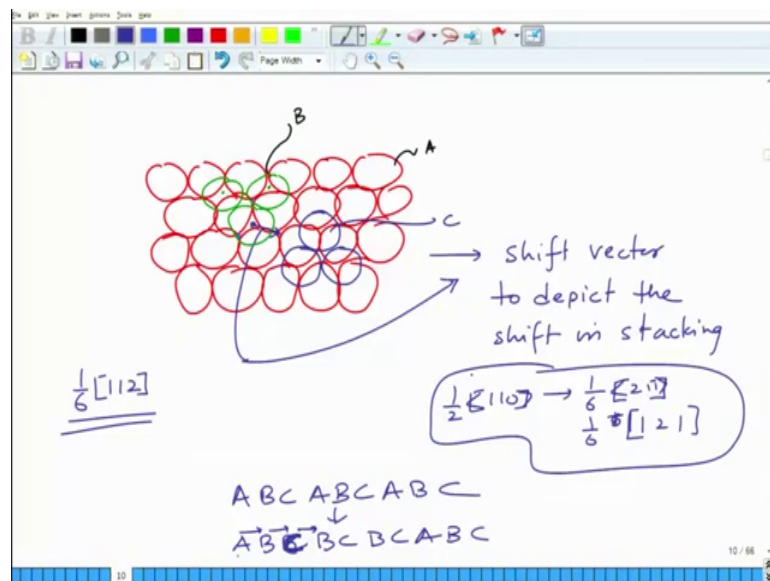 File Edit View Insert Actions Tools Help
B I
Page Width
B
A
C
→ shift vector
to depict the
shift in stacking
1/6 [112]
1/2 [110] → 1/6 [211]
1/6 [121]
A B C A B C A B C
↓
A B C B C B C A B C
10 / 66
10